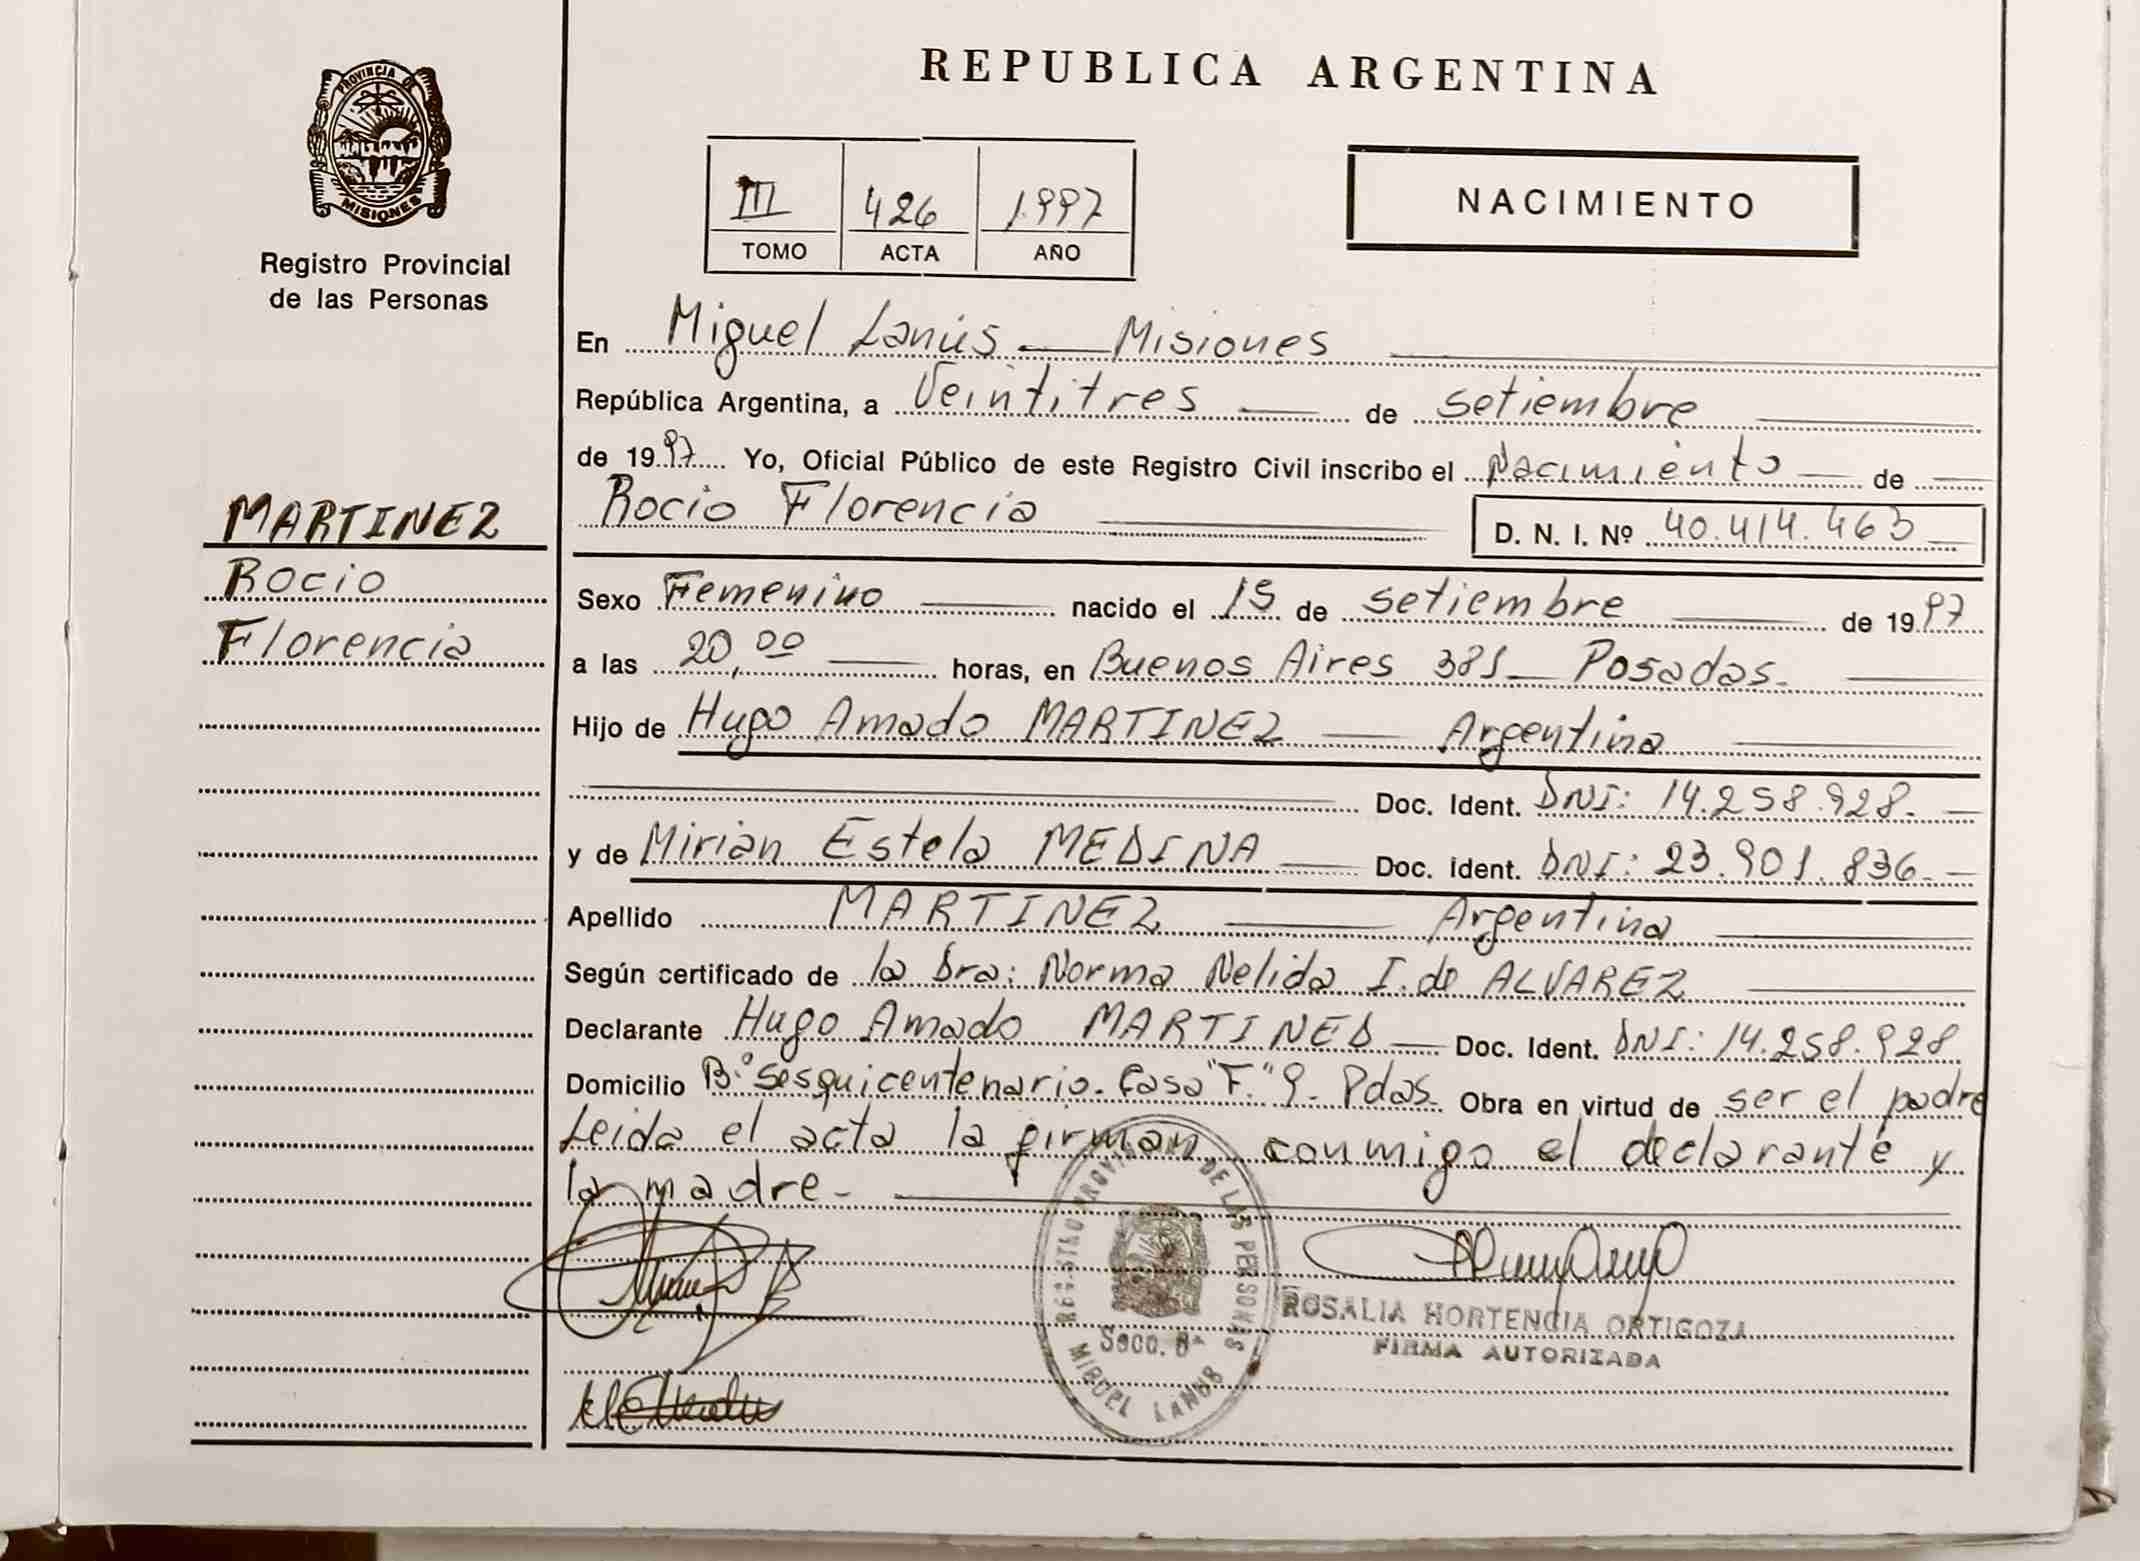 PROVINCIA DE
MISIONES
Registro Provincial
de las Personas
MARTINEZ
Rocio
Florencia
REPUBLICA ARGENTINA
III 426 1997
TOMO ACTA AÑO
NACIMIENTO
En Miguel Lanús — Misiones
República Argentina, a Veintitres — de setiembre
de 1997 Yo, Oficial Público de este Registro Civil inscribo el Nacimiento — de
Rocio Florencia
D. N. I. Nº 40.414.463
Sexo Femenino nacido el 15 de setiembre de 1997
a las 20,00 horas, en Buenos Aires 381 — Posadas.
Hijo de Hugo Amado MARTINEZ — Argentina
Doc. Ident. DNI: 14.258.928.
y de Mirian Estela MEDINA — Doc. Ident. DNI: 23.901.836.
Apellido MARTINEZ — Argentina
Según certificado de la Dra: Norma Nelida I. de ALVAREZ
Declarante Hugo Amado MARTINED — Doc. Ident. DNI: 14.258.928
Domicilio B:º Sesquicentenario. Casa "F." 9. Pdas. Obra en virtud de ser el padre
Leida el acta la firman, conmigo el declarante y
la madre.
REGISTRO PROVINCIAL DE LAS PERSONAS
Secc. 8ª
MIGUEL LANUS
ROSALIA HORTENCIA ORTIGOZA
FIRMA AUTORIZADA